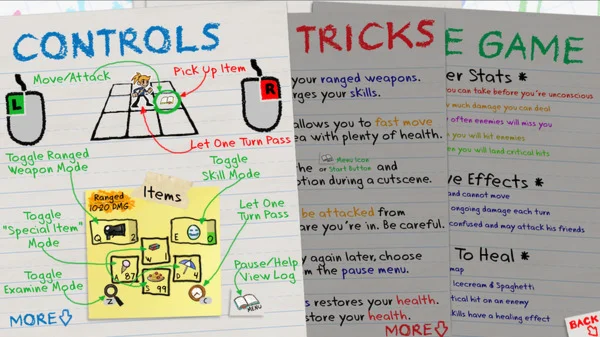 CONTROLS
Move/Attack
Pick Up Item
L
R
Let One Turn Pass
Toggle Ranged
Weapon Mode
Toggle
Skill Mode
Items
Ranged
10-20 DMG
Q 2
E 0
W 1
A 87
D 4
S 99
Z
C
Toggle
"Special Item"
Mode
Let One
Turn Pass
Toggle
Examine Mode
Pause/Help
View Log
MENU
MORE
TRICKS
your ranged weapons.
rges your skills.
allows you to fast move
ea with plenty of health.
he Menu Icon or Start Button and
otion during a cutscene.
be attacked from
are you're in. Be careful.
y again later, choose
om the pause menu.
s restores your health.
store your health.
MORE
E GAME
er Stats *
ou can take before you're unconscious
much damage you can deal
often enemies will miss you
you will hit enemies
en you will land critical hits
ve Effects *
and cannot move
ongoing damage each turn
confused and may attack his friends
To Heal *
map
Icecream & Spaghetti
itical hit on an enemy
kills have a healing effect
BACK